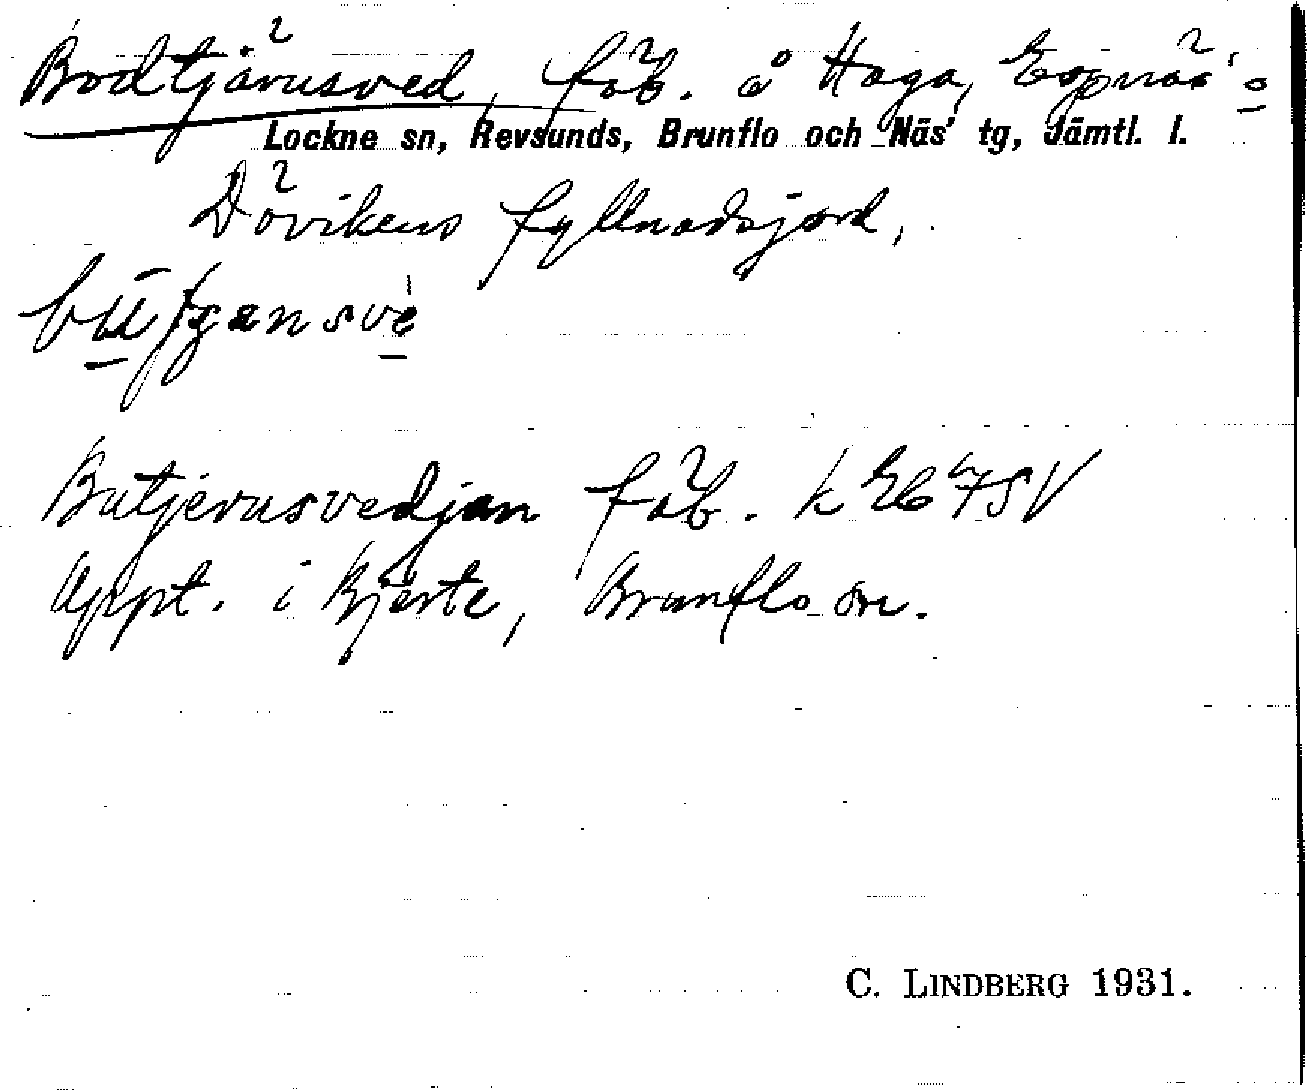 Bodtjärnsved, fäb. å Haga, Espnäs' o
Lockne sn, Revsunds, Brunflo och Näs' tg, Jämtl. l.
Dövikens fyllnadsjord,
Butjernsvedjan fäb. k Eb 7SV
Uppt. i Kjerte, Brunflo sn.
C. LINDBERG 1931.